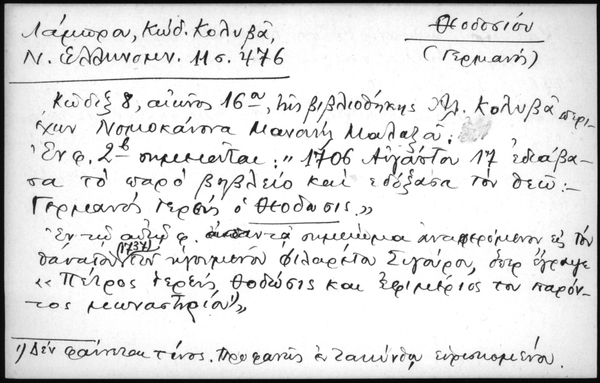 Λάμπρου, Κώδ. Κολυβᾶ,
Ν. Ἑλληνομν. 11 σ. 476
Θεοδοσίου
(Γερμανὴ)
Κῶδιξ 8, αἰῶνος 16ου, τῆς βιβλιοθήκης Ἀλ. Κολυβᾶ περι-
έχων Νομοκάνονα Μανουὴλ Μαλαξοῦ.
Ἐν φ. 2β σημειοῦται: „ 1706 Αὐγούστου 17 ἐδιάβα-
σα τὸ παρὸ βηβλείο καὶ ἐδόξασα τὸν θεῶ:–
Γερμανὸς Ἱερεὺς ὁ Θοδωσις.»
Ἐν τῷ αὐτῷ φ. σημείωμα ἀναφερόμενον εἰς τὸν
θάνατον (1737) τοῦ ἡγουμένου Φιλαρέτου Σιγούρου, ὅπερ ἔγραψε
«Πέτρος ἱερεὺς θοδώσις καὶ ἐφιμέριος του παρόν-
τος μωναστηρίου¹⁾»
1) Δὲν φαίνεται τίνος. Προφανῶς ἐν Ζακύνθῳ εὑρισκομένου.